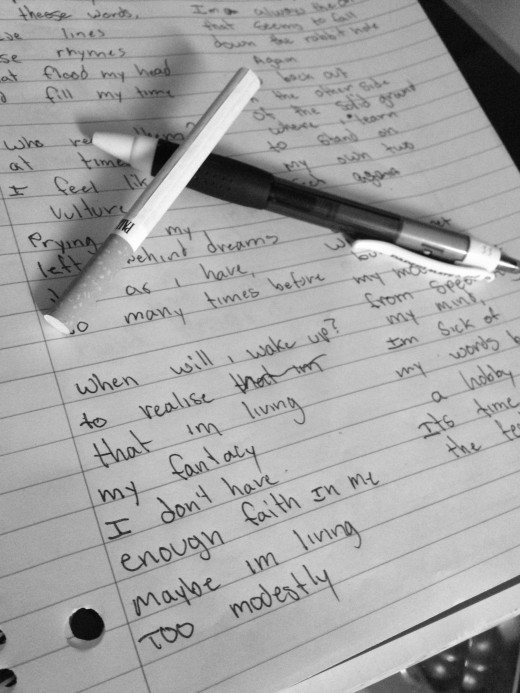 theese words.
lines
rhymes
flood my head
fill my time
who
at times
I feel
Vulture
Prying my
left behind dreams
as i have,
so many times before
when will i wake up?
to realise that im
that im living
my fantacy
I don't have
enough faith in me
maybe im living
Too modestly
Im always the
that seems to fall
down the rabbit hole
Again
back out
the other side
of the solid ground
where learn
to stand on
my own two
against
my
from
my mind,
Im sick of
my words
a hobby
Its time
the